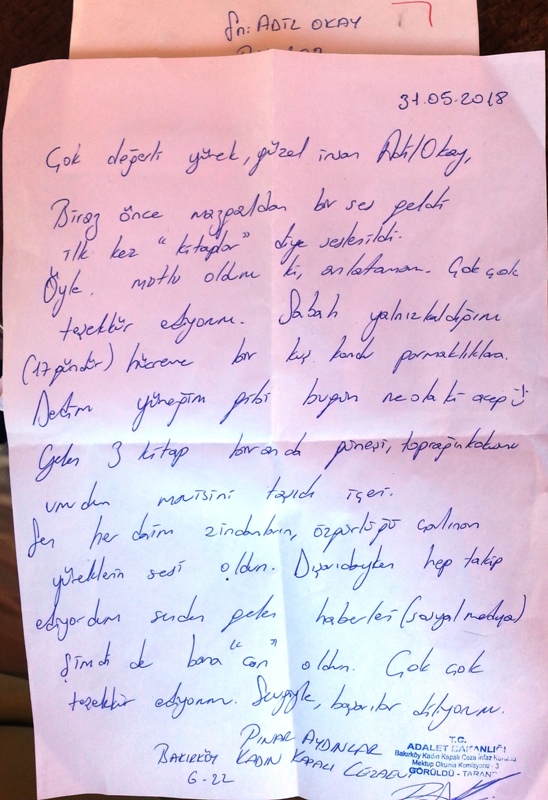 Sn: ADİL OKAY
31.05.2018
Çok değerli yürek, güzel insan Adil Okay,
Biraz önce mazgaldan bir ses geldi
ilk kez "kitaplar" diye seslenildi.
Öyle mutlu oldum ki, anlatamam. Çok çok
teşekkür ediyorum. Sabah yalnız kaldığım
(17 gündür) hücreme bir kuş kondu parmaklıklara.
Dedim yüreğim gibi bugün ne ola ki acep :)
Gelen 3 kitap bir anda güneşi, toprağın kokusunu
umudun mavisini taşıdı içeri.
Sen her daim zindanların, özgürlüğü çalınan
yüreklerin sesi oldun. Dışarıdayken hep takip
ediyordum senden gelen haberleri (sosyal medya)
Şimdi de bana "can" oldun. Çok çok
teşekkür ediyorum. Sevgiyle, başarılar diliyorum.
PINAR AYDINLAR
BAKIRKÖY KADIN KAPALI CEZAEVİ
G-22
T.C.
ADALET BAKANLIĞI
Bakırköy Kadın Kapalı Ceza İnfaz Kurumu
Mektup Okuma Komisyonu - 3
GÖRÜLDÜ - TARANDI